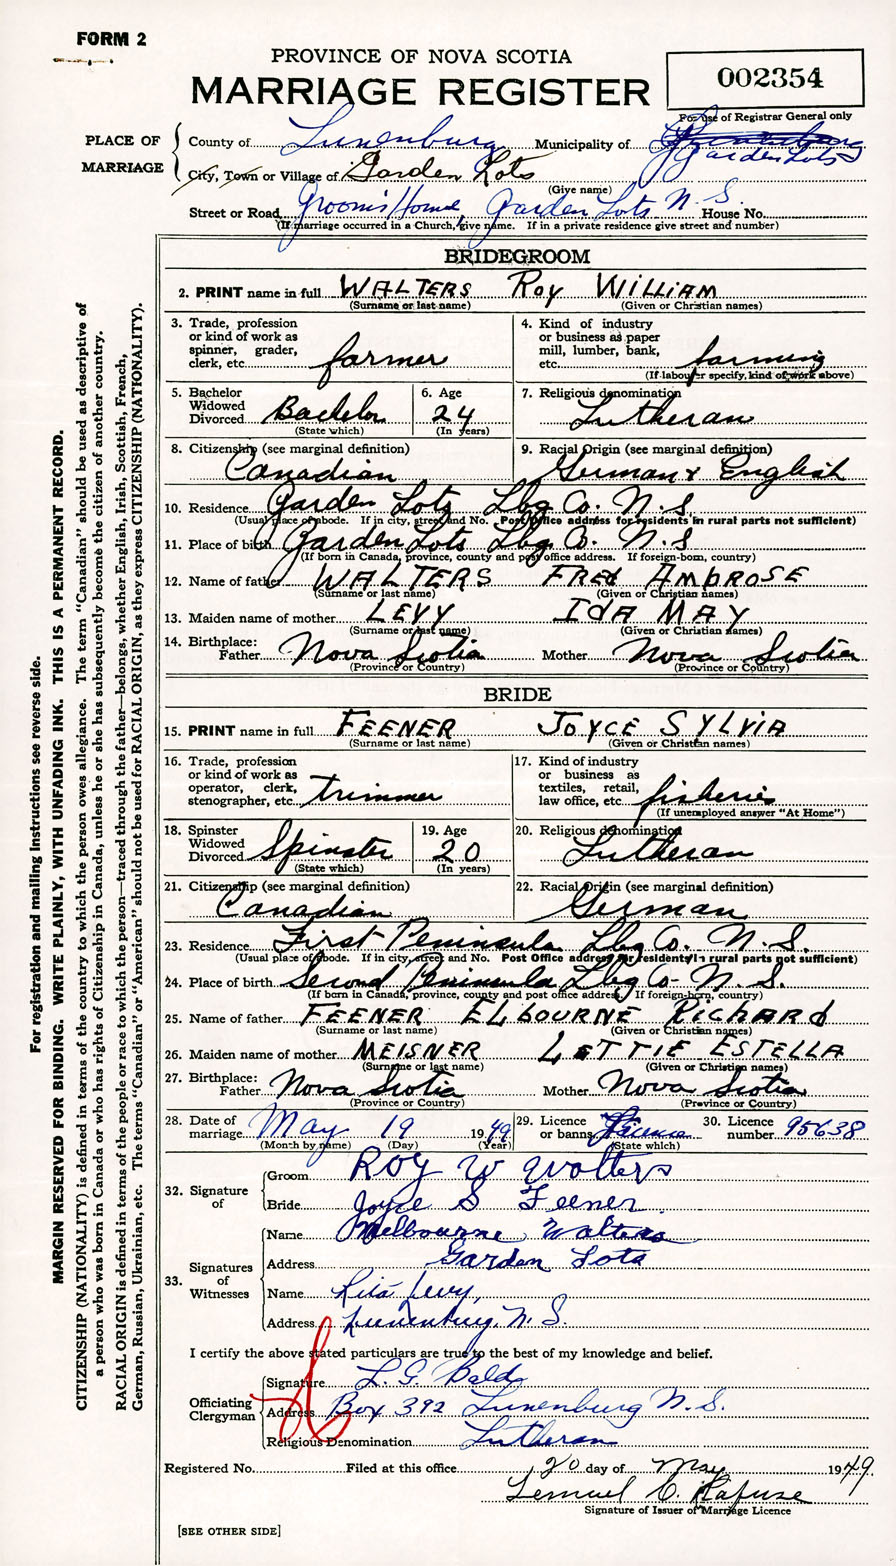 FORM 2
PROVINCE OF NOVA SCOTIA
MARRIAGE REGISTER
002354
For use of Registrar General only
PLACE OF MARRIAGE
County of Lunenburg Municipality of Garden Lots
City, Town or Village of Garden Lots
(Give name)
Street or Road Groom's Home, Garden Lots N. S. House No.
(If marriage occurred in a Church, give name. If in a private residence give street and number)
BRIDEGROOM
2. PRINT name in full WALTERS ROY WILLIAM
(Surname or last name) (Given or Christian names)
3. Trade, profession or kind of work as spinner, grader, clerk, etc. farmer
4. Kind of industry or business as paper mill, lumber, bank, etc. farming
(If labourer specify, kind of work above)
5. Bachelor Widowed Divorced Bachelor
(State which)
6. Age 24
(In years)
7. Religious denomination
Lutheran
8. Citizenship (see marginal definition)
Canadian
9. Racial Origin (see marginal definition)
German & English
10. Residence Garden Lots Lbg Co. N.S.
(Usual place of abode. If in city, street and No. Post Office address for residents in rural parts not sufficient)
11. Place of birth Garden Lots Lbg Co. N.S
(If born in Canada, province, county and post office address. If foreign-born, country)
12. Name of father WALTERS FREd AMBROSE
(Surname or last name) (Given or Christian names)
13. Maiden name of mother LEVY IdA MAY
(Surname or last name) (Given or Christian names)
14. Birthplace:
Father Nova Scotia Mother Nova Scotia
(Province or Country) (Province or Country)
BRIDE
15. PRINT name in full FEENER JOYCE SYLVIA
(Surname or last name) (Given or Christian names)
16. Trade, profession or kind of work as operator, clerk, stenographer, etc. trimmer
17. Kind of industry or business as textiles, retail, law office, etc. fisheries
(If unemployed answer "At Home")
18. Spinster Widowed Divorced Spinster
(State which)
19. Age 20
(In years)
20. Religious denomination
Lutheran
21. Citizenship (see marginal definition)
Canadian
22. Racial Origin (see marginal definition)
German
23. Residence First Peninsula Lbg Co. N.S.
(Usual place of abode. If in city, street and No. Post Office address for residents in rural parts not sufficient)
24. Place of birth Second Peninsula Lbg Co- N.S.
(If born in Canada, province, county and post office address. If foreign-born, country)
25. Name of father FEENER ELbOURNE RICHARd
(Surname or last name) (Given or Christian names)
26. Maiden name of mother MEISNER LETTIE ESTELLA
(Surname or last name) (Given or Christian names)
27. Birthplace:
Father Nova Scotia Mother Nova Scotia
(Province or Country) (Province or Country)
28. Date of marriage May 19 1949
(Month by name) (Day) (Year)
29. Licence or banns Licence
(State which)
30. Licence number 95638
32. Signature of
Groom Roy W Walters
Bride Joyce S Feener
33. Signatures of Witnesses
Name Melbourne Walters
Address Garden Lots
Name Rita Levy,
Address Lunenburg, N. S.
I certify the above stated particulars are true to the best of my knowledge and belief.
Officiating Clergyman
Signature L. G. Bald
Address Box 392 Lunenburg N. S.
Religious Denomination Lutheran
Registered No. Filed at this office 20 day of May 1949.
Lemuel C. Rafuse
Signature of Issuer of Marriage Licence
[SEE OTHER SIDE]
For registration and mailing instructions see reverse side.
MARGIN RESERVED FOR BINDING. WRITE PLAINLY, WITH UNFADING INK. THIS IS A PERMANENT RECORD.
CITIZENSHIP (NATIONALITY) is defined in terms of the country to which the person owes allegiance. The term "Canadian" should be used as descriptive of
a person who was born in Canada or who has rights of Citizenship in Canada, unless he or she has subsequently become the citizen of another country.
RACIAL ORIGIN is defined in terms of the people or race to which the person—traced through the father—belongs, whether English, Irish, Scottish, French,
German, Russian, Ukrainian, etc. The terms "Canadian" or "American" should not be used for RACIAL ORIGIN, as they express CITIZENSHIP (NATIONALITY).